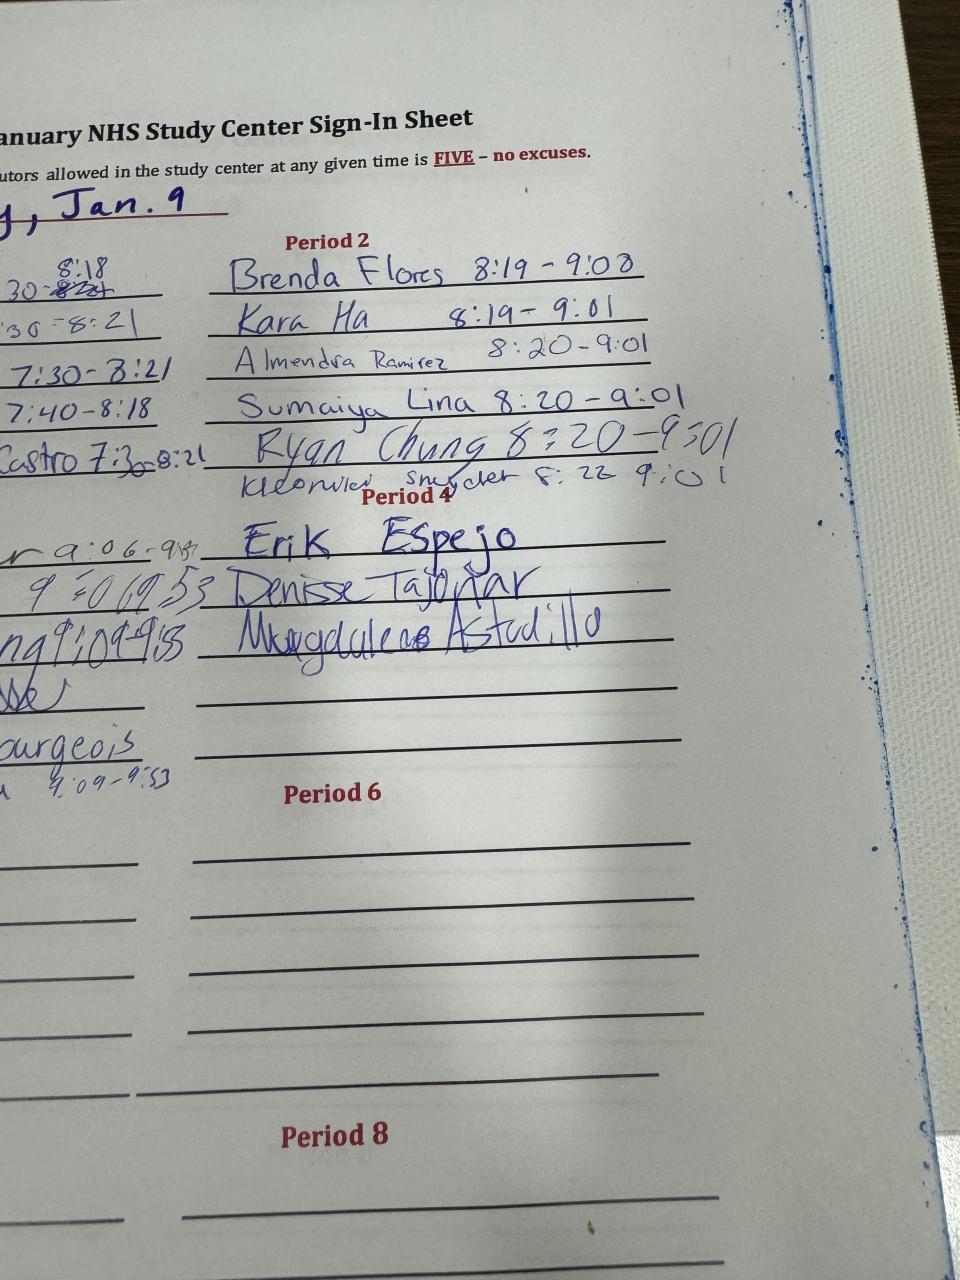 anuary NHS Study Center Sign-In Sheet
utors allowed in the study center at any given time is FIVE – no excuses.
y, Jan. 9
8:18
30-
30-8:21
7:30-8:21
7:40-8:18
Castro 7:30-8:21
Period 2
Brenda Flores 8:19-9:08
Kara Ha 8:19-9:01
Almendra Ramirez 8:20-9:01
Sumaiya Lina 8:20-9:01
Ryan Chung 8:20-9:01
Snyder 8:22 9:01
r 9:06-
9:53
ng 9:09-
ourgeois
9:09-9:53
Period 4
Erik Espejo
Denisse Tajonar
Magdalena Astudillo
Period 6
Period 8